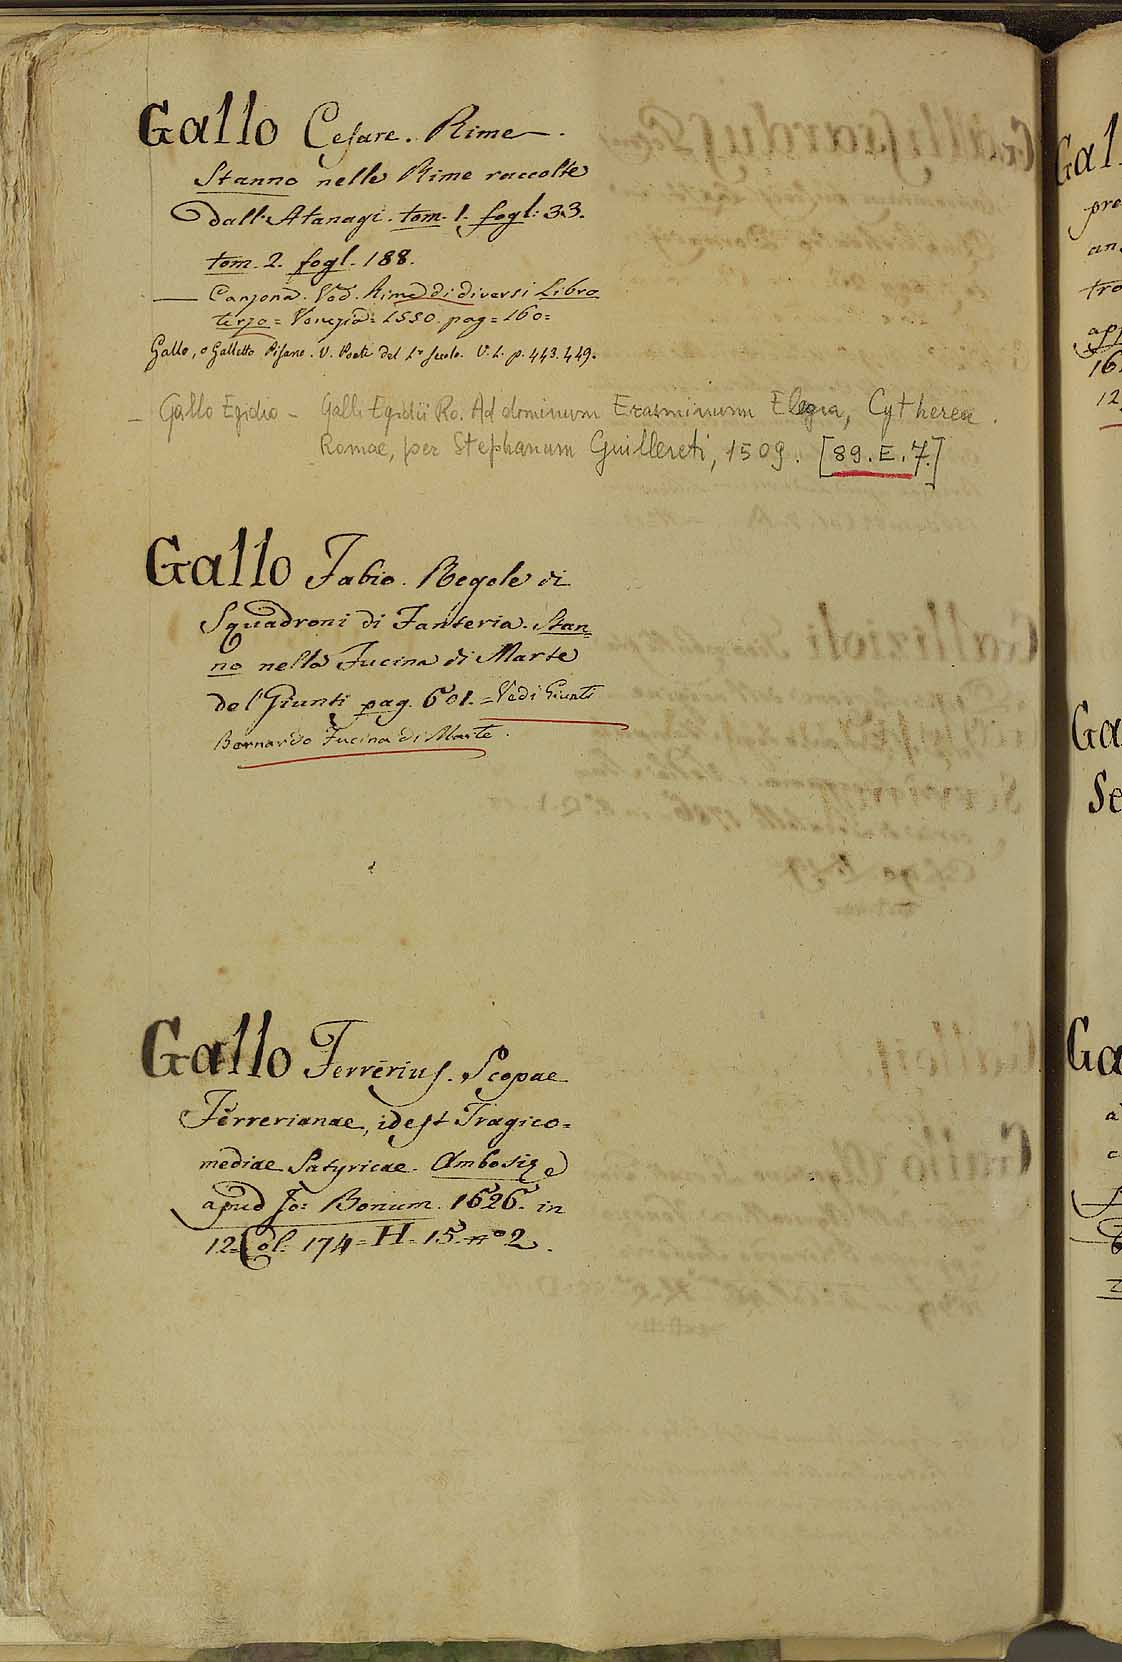 Gallo Cesare. Rime.
Stanno nelle Rime raccolte
dall'Atanagi. tom. 1. fogl: 33.
tom. 2. fogl. 188.
— Canzona. Ved. Rime di diversi Libro
terzo = Venezia = 1550. pag = 160 =
Gallo, o Galletto Pisano. V. Poeti del 1º secolo. V. 1. p. 443. 449.
— Gallo Egidio — Galli Egidii Ro. Ad dominum Erasminum Elegia, Cytherea.
Romae, per Stephanum Guillereti, 1509. [89. E. 7.]
Gallo Fabio. Regole di
Squadroni di Fanteria. Stan=
no nella Fucina di Marte
de' Giunti pag. 601. = Vedi Giunti
Bernardo Fucina di Marte.
Gallo Ferrerius. Scopae
Ferrerianae, idest Tragico=
mediae Satyricae. Ambosiae
apud Jo: Bonum. 1626. in
12. Col. 174 = H = 15. nº 2.
Gal
pre
an
tro
app
16
12
Ga
Se
Ga
a
c